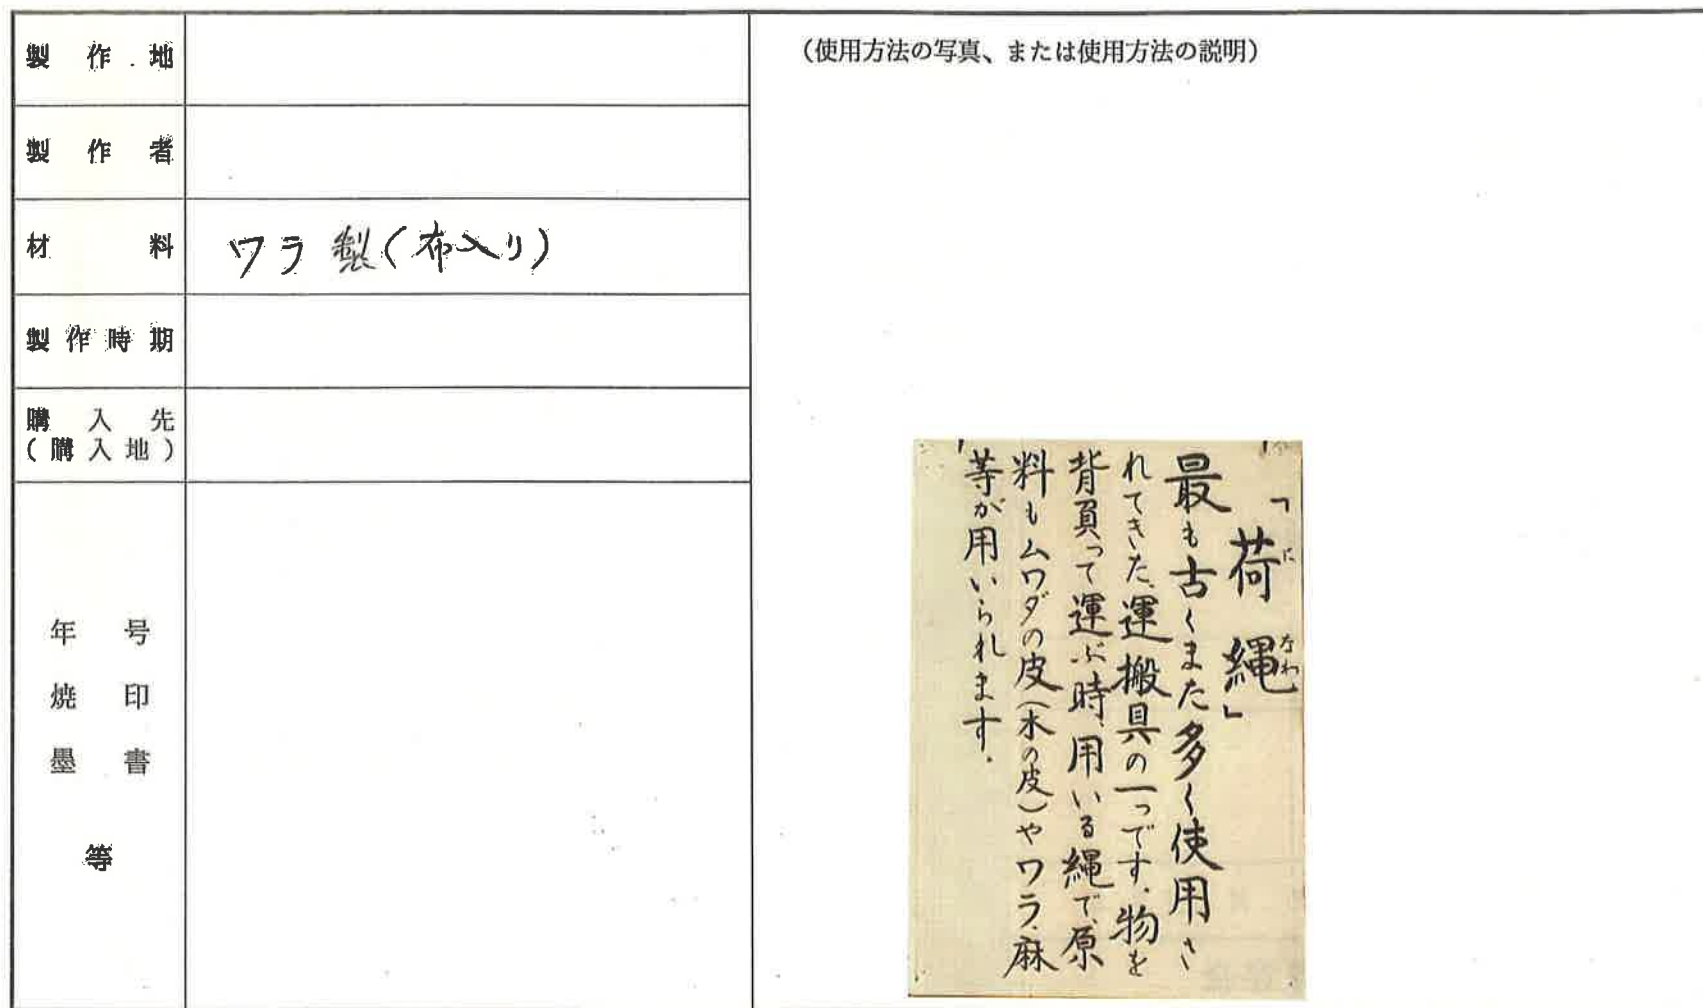 製作地
製作者
材料
ワラ製(布入り)
製作時期
購入先
(購入地)
年号
焼印
墨書
等
(使用方法の写真、または使用方法の説明)
「荷縄」
に なわ
最も古くまた多く使用さ
れてきた、運搬具の一つです。物を
背負って運ぶ時、用いる縄で、原
料もムワダの皮(木の皮)やワラ、麻
等が用いられます。